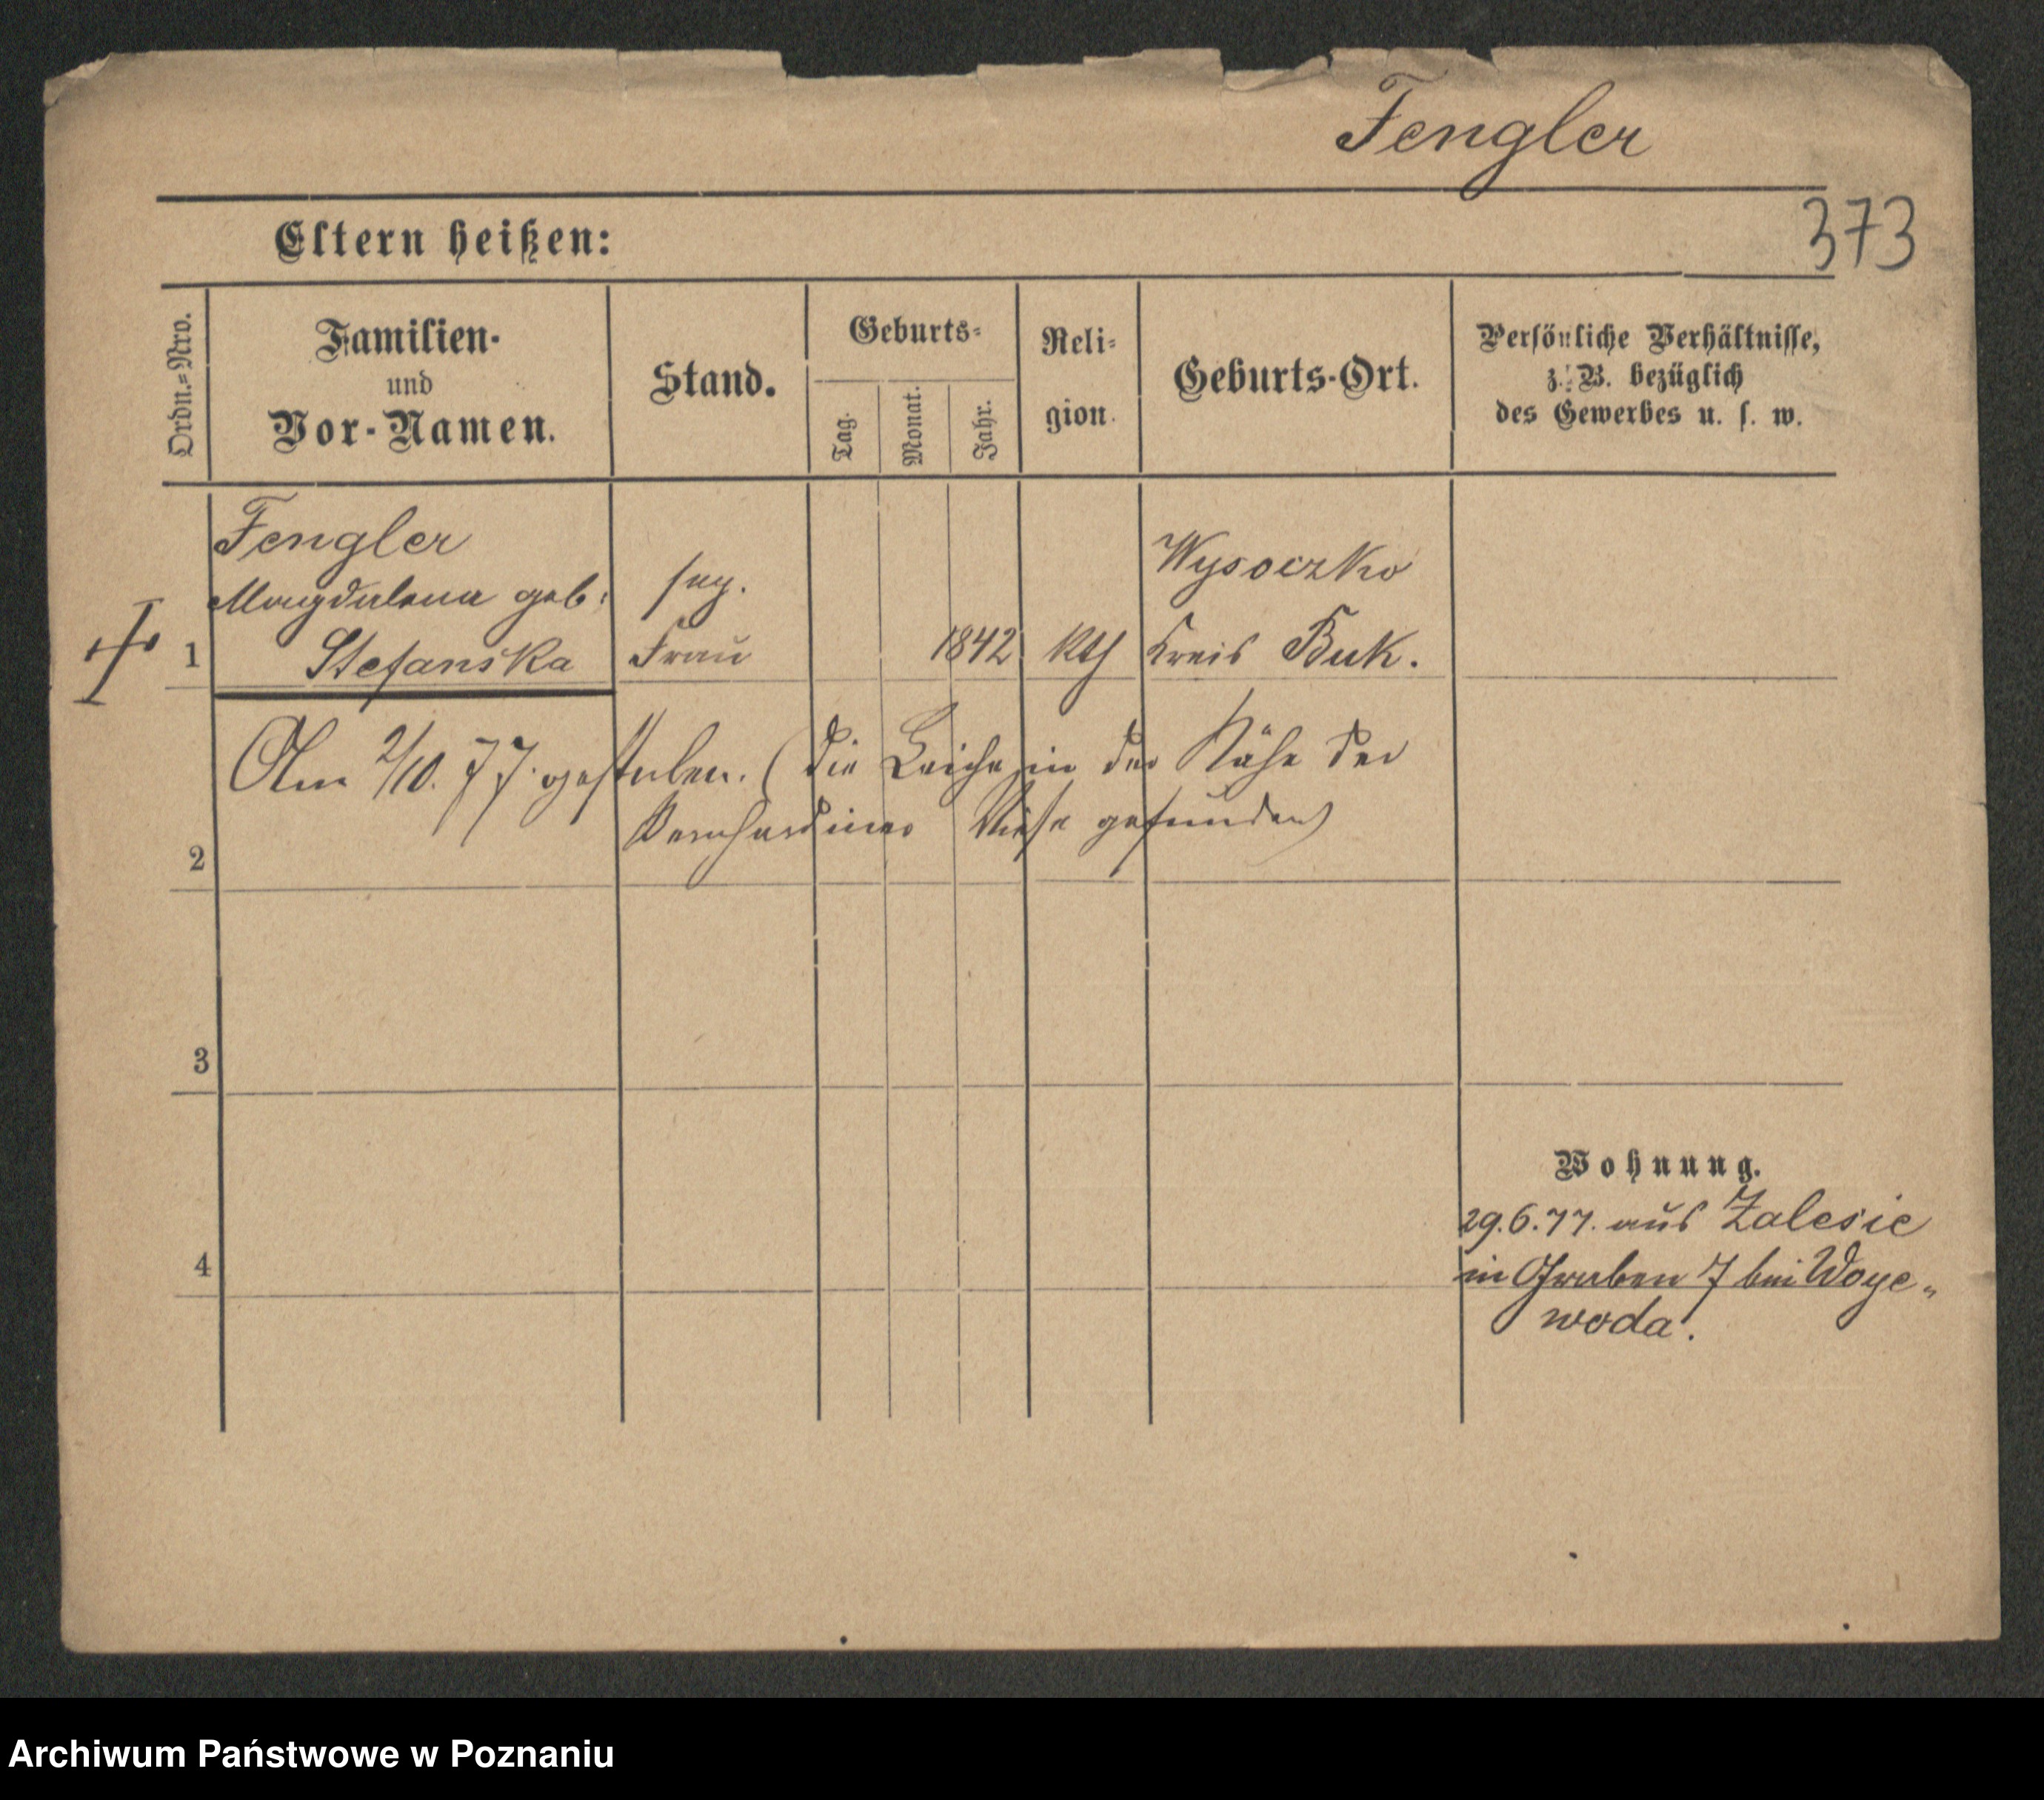 Fengler
373
Eltern heißen:
Ordn.-Nro.
Familien-
und
Vor-Namen.
Stand.
Geburts-
Tag.
Monat.
Jahr.
Reli-
gion.
Geburts-Ort.
Persönliche Verhältnisse,
z. B. bezüglich
des Gewerbes u. s. w.
Fengler
Magdalena geb.
Stefanska
sep.
Frau
1842
Kth
Wysoczko
Kreis Buk.
1
Am 2/10. 77. gestorben. (die Leiche in der Nähe der
Bernhardiner Wiese gefunden)
2
3
4
Wohnung.
29.6.77. aus Zalesie
in Graben 7 bei Woye-
woda.
Archiwum Państwowe w Poznaniu